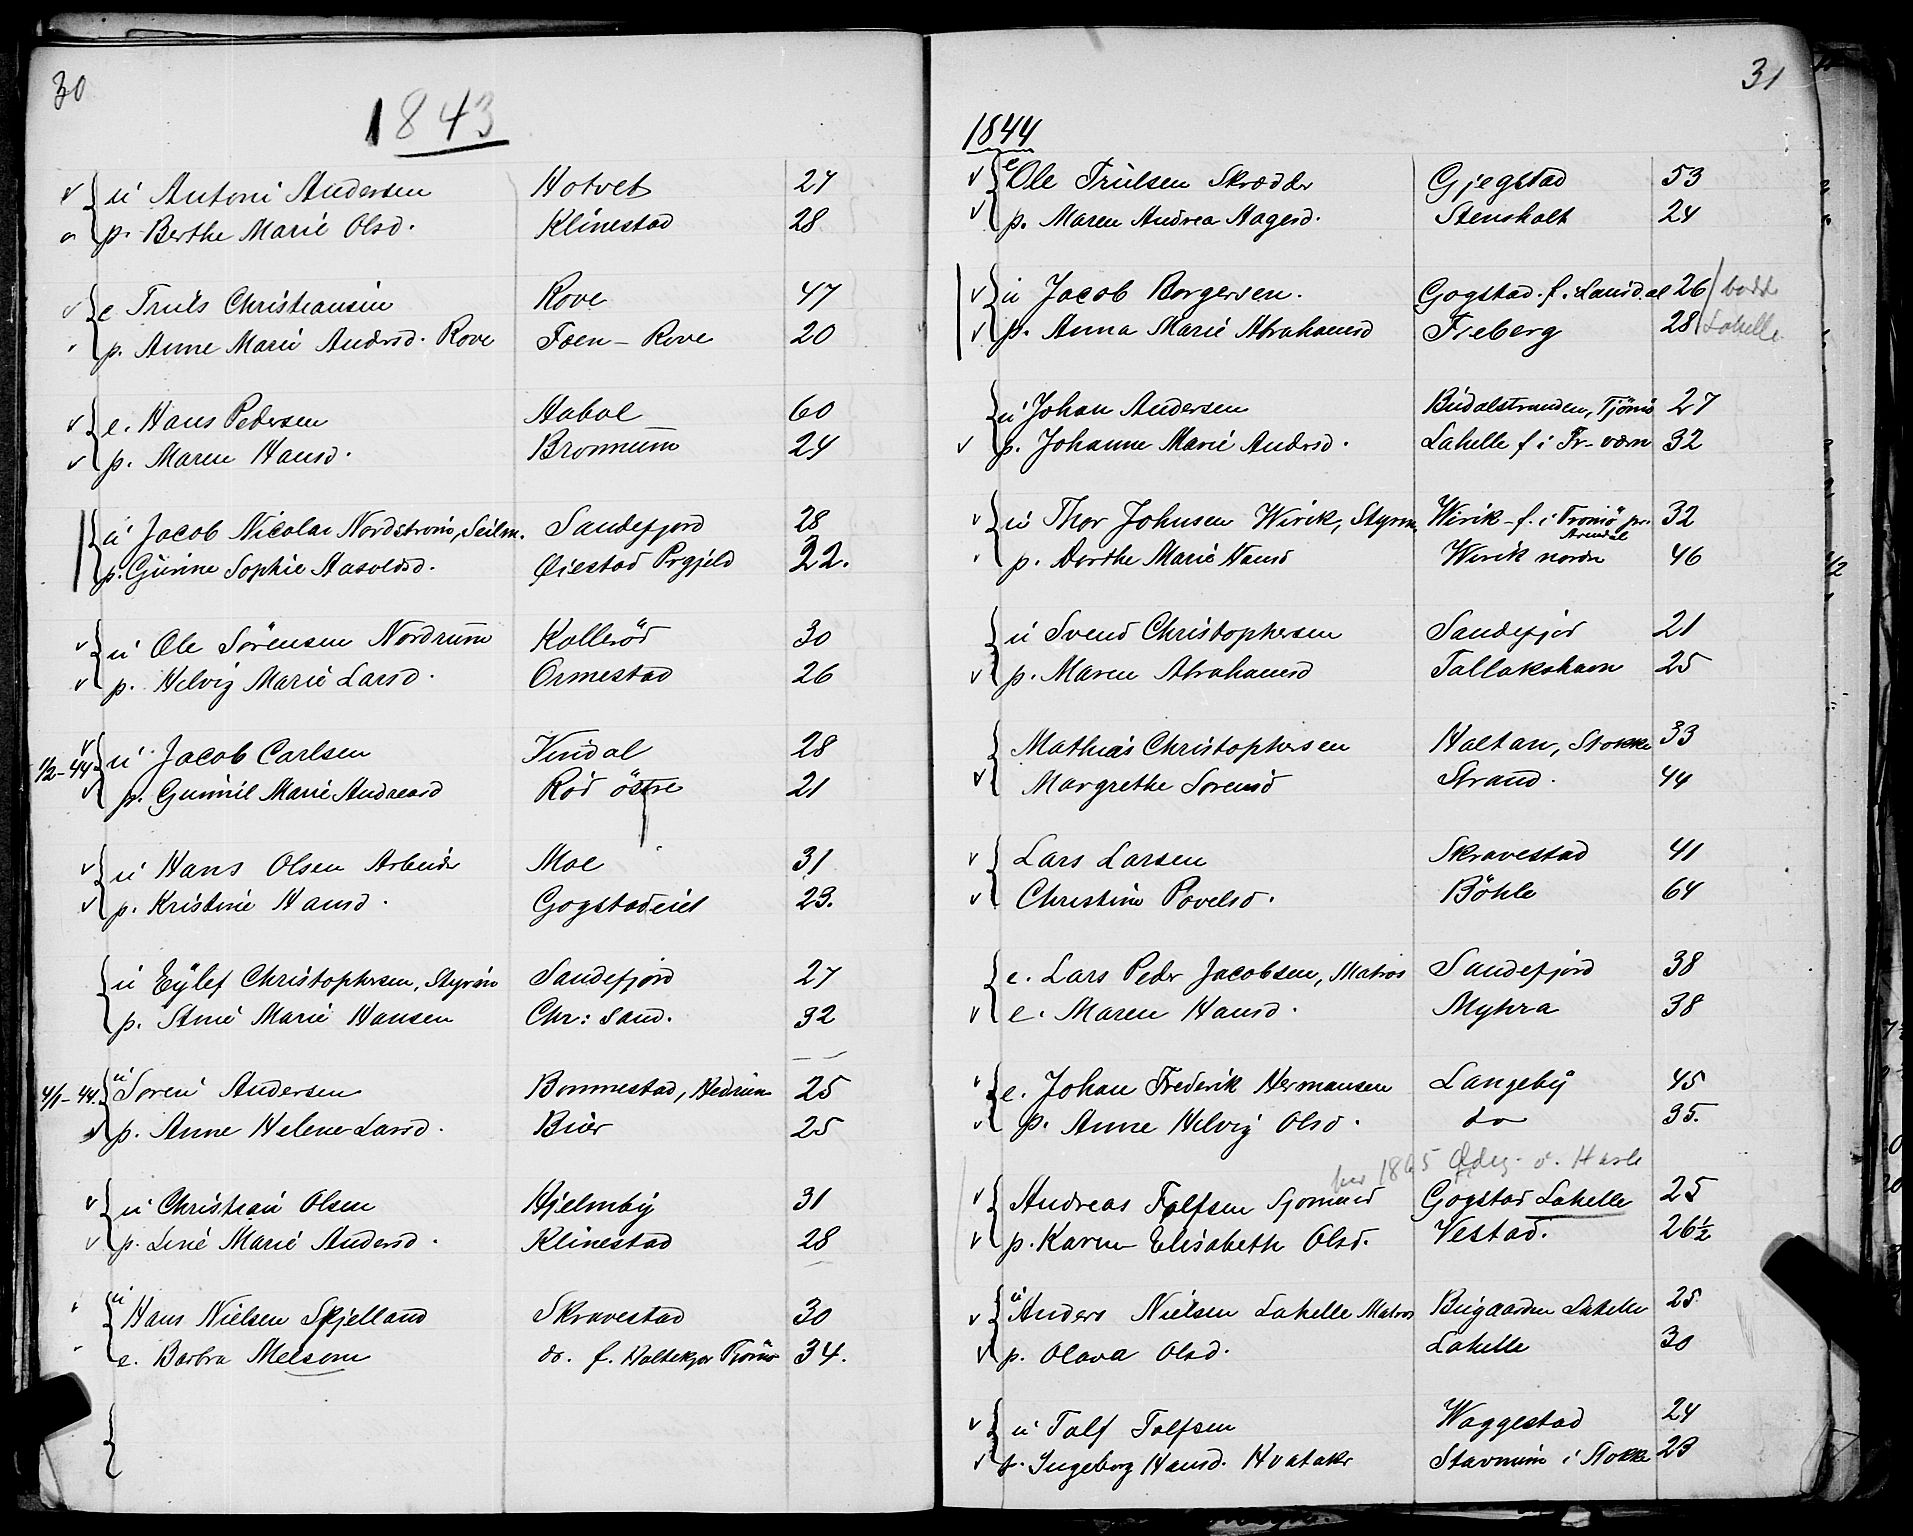 30
1843
u Anton Andersen Hotvet 27
p. Berthe Marie Olsd. Klinestad 28
e Truls Christiansen Rove 47
p. Anne Marie Andersd. Rove Foen - Rove 20
e. Hans Pedersen Habol 60
p. Maren Hansd. Bromnum 24
u Jacob Nicolai Nordstrom, Seilm. Sandefjord 28
p. Gurine Sophie Aasoldsd. Øiestad Prgjeld 22.
u Ole Sörensen Nordrum Kolleröd 30
p. Helvig Marie Larsd. Ormestad 26
1/2-44 u Jacob Carlsen Vindal 28
p. Gunnil Marie Andreasd Röd östre 21
u Hans Olsen Arbeider Moe 31
p. Kristine Hansd. Gogstadeiet 23.
u Eÿlef Christophersen, Styrm Sandefjord 27
p. Stine Marie Hansen Chr: Sand. 32
4/1-44. u Soren Andersen Bommestad, Hedrum 25
p. Anne Helene Larsd. Buer 25
u Christian Olsen Hjelmby 31
p. Line Marie Andersd. Klinestad 28
u Hans Nielsen Skjelland Skravestad 30
e. Barbra Melsom do. f. Holtekjær Tjömö 34.
31
1844
e Ole Trulsen Skrædder Gjegstad 53
p. Maren Andrea Aagesd. Stensholt 24
u Jacob Borgersen. Gogstad. f. Lausdal 26 bodde
p. Anna Marie Abrahamsd Freberg 28 Lahelle
u Johan Andersen Budalstranden, Tjömö 27
p. Johanne Marie Andersd. Lahelle f i Fr-værn 32
u Thor Johnsen Wirik, Styrm. Wirik - f. i Tromö pr. Arendal 32
p. Dorthe Marie Hansd Wirik nordre 46
u Svend Christophersen Sandefjord 21
p. Maren Abrahamsd Tallakshavn 25
Mathias Christophersen Haltan, Stokke 33
Margrethe Sorensd Strand. 44
Lars Larsen Skravestad 41
Christine Povelsd. Böhle 64
e. Lars Peder Jacobsen, Matros Sandefjord 38
e. Maren Hansd. Myhra 38
e. Johan Frederik Hermansen Langebÿ 45
p. Anne Helvig Olsd. do 35.
1865 Ødeg. v. Hasle
Andreas Tolfsen Sjomand Gogstad Lahelle 25
p. Karen Elisabeth Olsd. Vestad. 26½
u Anders Nielsen Lahelle Matros Bugaarden Lahelle 25
p. Olava Olsd. Lahelle 30
u Tolf Tolfsen Waggestad 24
p. Ingeborg Hansd. Hvataker Stavnum i Stokke 23